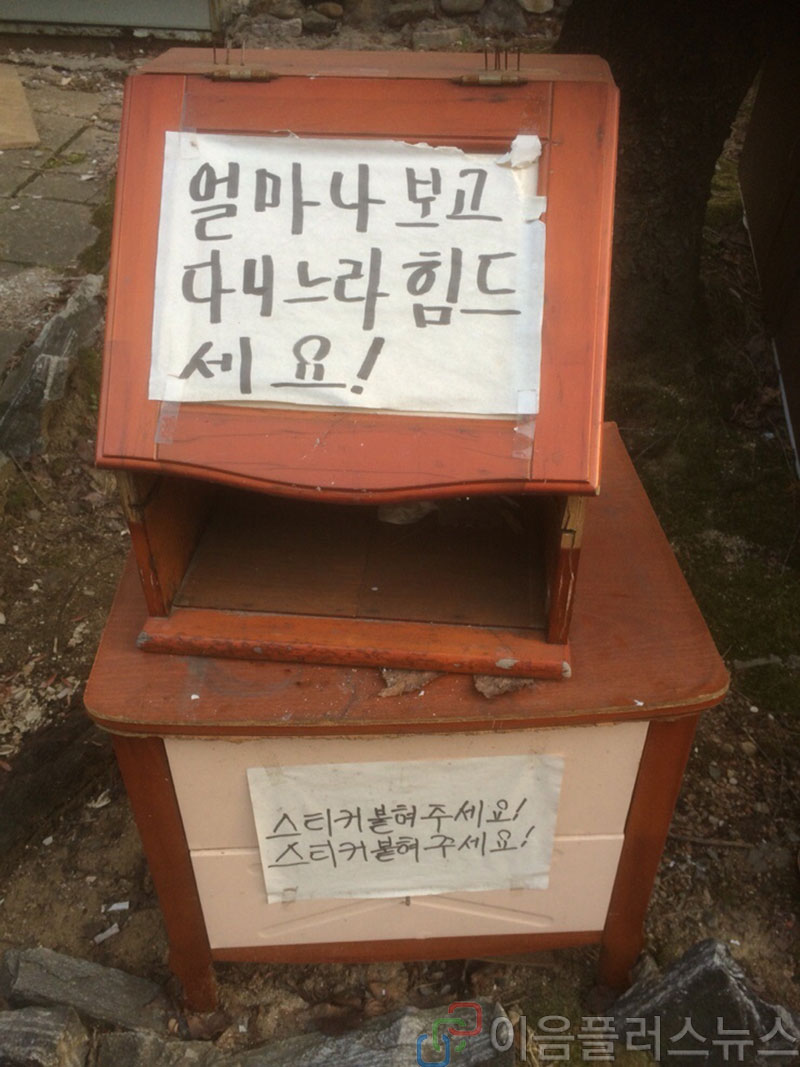 얼마나 보고
다니느라 힘드
세요!
스티커붙혀주세요!
스티커붙혀주세요!
이음플러스뉴스